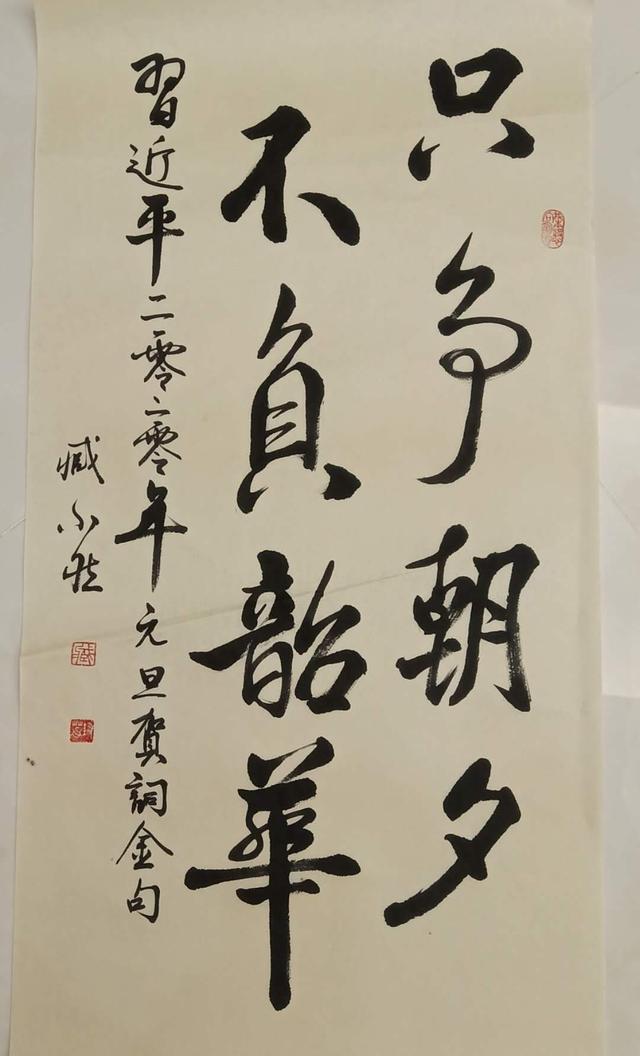 只争朝夕
不負韶華
習近平二零二零年元旦賀詞金句
臧